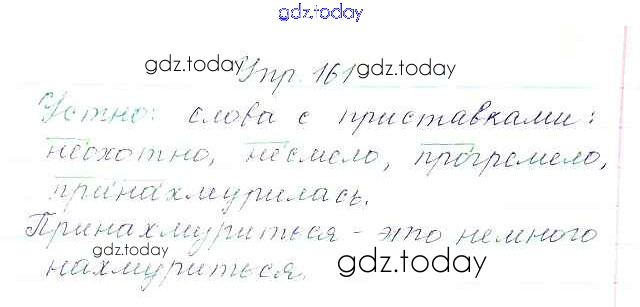 gdz.today
gdz.today Упр. 161 gdz.today
Устно: слова с приставками:
неохотно, несмело, прогремело,
принахмурилась.
Принахмуриться - это немного
нахмуриться. gdz.today